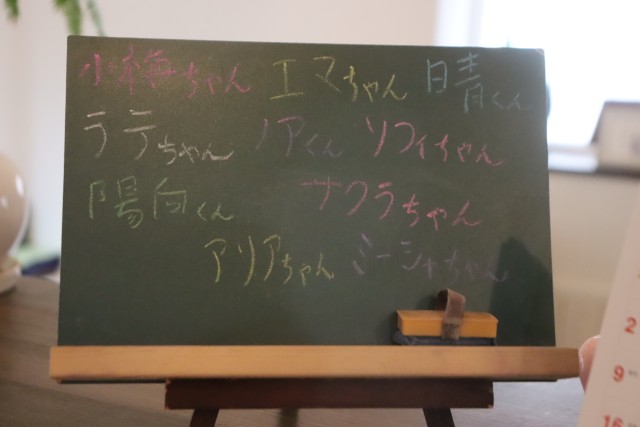 小梅ちゃん エマちゃん 晴くん
ラテちゃん ノアくん ソフィちゃん
陽向くん サクラちゃん
アリアちゃん ミーシャちゃん
2
9
16